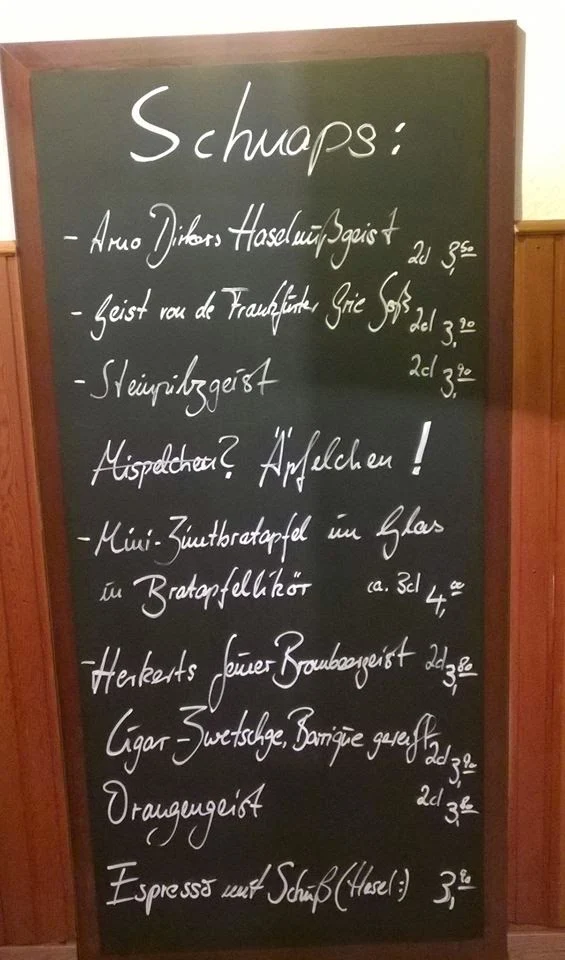 Schnaps:
- Arno Dirkers Haselnußgeist 2cl 3,50
- Geist von de Frankfurter Grie Soß 2cl 3,90
- Steinpilzgeist 2cl 3,90
Mispelchen? Äpfelchen!
- Mini-Zimtbratapfel im Glas
in Bratapfellikör ca. 3cl 4,00
- Herkerts feiner Brombeergeist 2cl 3,80
Cigar-Zwetschge, Barrique gereift 2cl 3,90
Orangengeist 2cl 3,80
Espresso mit Schuß (Hasel:) 3,90